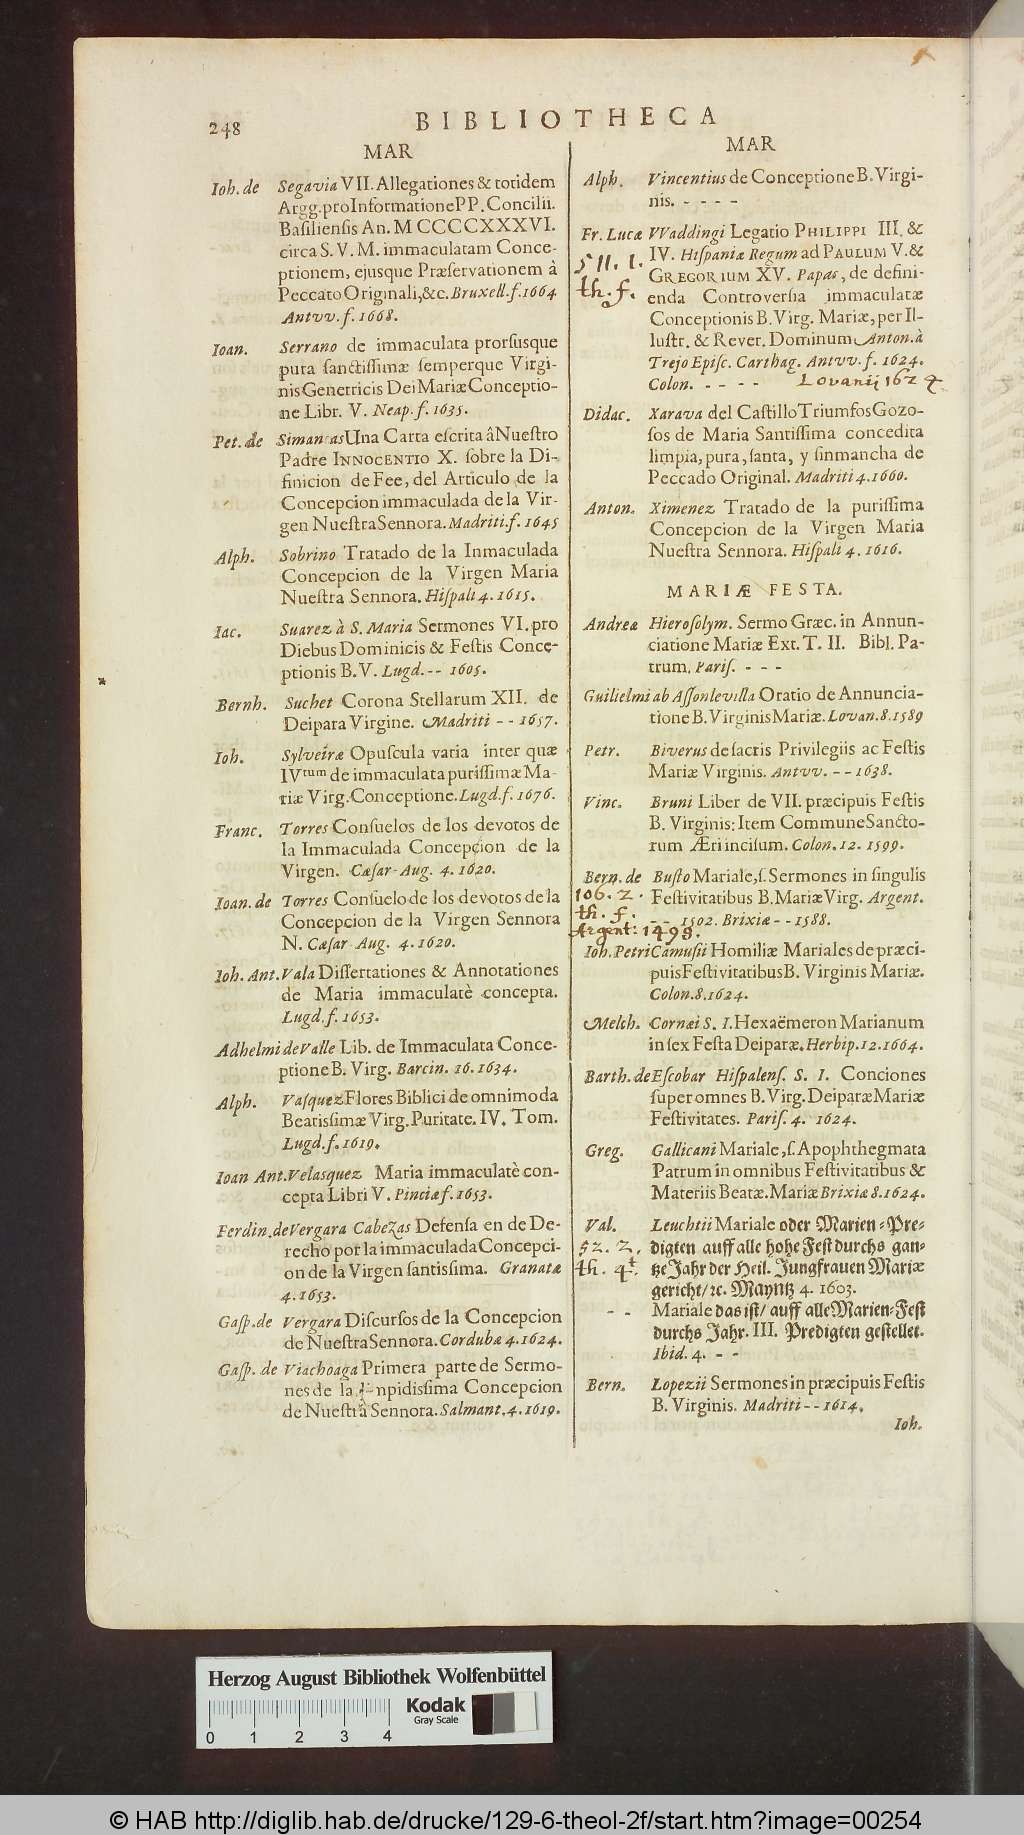 248
BIBLIOTHECA
MAR
Ioh. de Segavia VII. Allegationes & totidem
Argg. pro Informatione PP. Concilii.
Basiliensis An. M CCCCXXXVI.
circa S. V. M. immaculatam Conce-
ptionem, ejusque Præservationem à
Peccato Originali, &c. Bruxell. f. 1664
Antvv. f. 1668.
Ioan. Serrano de immaculata prorsusque
pura sanctissimæ semperque Virgi-
nis Genetricis Dei Mariæ Conceptio-
ne Libr. V. Neap. f. 1635.
Pet. de Simancas Una Carta escrita â Nuestro
Padre INNOCENTIO X. sobre la Di-
finicion de Fee, del Articulo de la
Concepcion immaculada de la Vir-
gen Nuestra Sennora. Madriti. f. 1645
Alph. Sobrino Tratado de la Inmaculada
Concepcion de la Virgen Maria
Nuestra Sennora. Hispali 4. 1615.
Iac. Suarez à S. Maria Sermones VI. pro
Diebus Dominicis & Festis Conce-
ptionis B. V. Lugd. -- 1605.
Bernh. Suchet Corona Stellarum XII. de
Deipara Virgine. Madriti -- 1657.
Ioh. Sylveiræ Opuscula varia inter quæ
IVtum de immaculata purissimæ Ma-
riæ Virg. Conceptione. Lugd. f. 1676.
Franc. Torres Consuelos de los devotos de
la Immaculada Concepcion de la
Virgen. Cæsar-Aug. 4. 1620.
Ioan. de Torres Consuelo de los devotos de la
Concepcion de la Virgen Sennora
N. Cæsar-Aug. 4. 1620.
Ioh. Ant. Vala Dissertationes & Annotationes
de Maria immaculatè concepta.
Lugd. f. 1653.
Adhelmi de Valle Lib. de Immaculata Conce-
ptione B. Virg. Barcin. 16. 1634.
Alph. Vasquez Flores Biblici de omnimoda
Beatissimæ Virg. Puritate. IV. Tom.
Lugd. f. 1619.
Ioan Ant. Velasquez Maria immaculatè con-
cepta Libri V. Pinciæ f. 1653.
Ferdin. de Vergara Cabezas Defensa en de De-
recho por la immaculada Concepci-
on de la Virgen santissima. Granatæ
4. 1653.
Gasp. de Vergara Discursos de la Concepcion
de Nuestra Sennora. Cordubæ 4. 1624.
Gasp. de Viachoaga Primera parte de Sermo-
nes de la limpidissima Concepcion
de Nuestra Sennora. Salmant. 4. 1619.
MAR
Alph. Vincentius de Conceptione B. Virgi-
nis. - - - -
Fr. Lucæ VVaddingi Legatio PHILIPPI III. &
IV. Hispaniæ Regum ad PAULUM V. &
511. 1.
GREGORIUM XV. Papas, de defini-
th. f.
enda Controversia immaculatæ
Conceptionis B. Virg. Mariæ, per Il-
lustr. & Rever. Dominum Anton. à
Trejo Episc. Carthag. Antvv. f. 1624.
Colon. - - - - Lovanij 1624
Didac. Xarava del Castillo Triumfos Gozo-
sos de Maria Santissima concedita
limpia, pura, santa, y sinmancha de
Peccado Original. Madriti 4. 1660.
Anton. Ximenez Tratado de la purissima
Concepcion de la Virgen Maria
Nuestra Sennora. Hispali 4. 1616.
MARIÆ FESTA.
Andreæ Hierosolym. Sermo Græc. in Annun-
ciatione Mariæ Ext. T. II. Bibl. Pa-
trum. Paris. - - -
Guilielmi ab Assonlevilla Oratio de Annuncia-
tione B. Virginis Mariæ. Lovan. 8. 1589
Petr. Biverus de sacris Privilegiis ac Festis
Mariæ Virginis. Antvv. -- 1638.
Vinc. Bruni Liber de VII. præcipuis Festis
B. Virginis: Item Commune Sancto-
rum Æri incisum. Colon. 12. 1599.
Bern. de Busto Mariale, s. Sermones in singulis
106. 2. Festivitatibus B. Mariæ Virg. Argent.
th. f. -- 1502. Brixiæ -- 1588.
Argent: 1498.
Ioh. Petri Camusii Homiliæ Mariales de præci-
puis Festivitatibus B. Virginis Mariæ.
Colon. 8. 1624.
Melch. Cornæi S. I. Hexaëmeron Marianum
in sex Festa Deiparæ. Herbip. 12. 1664.
Barth. de Escobar Hispalens. S. I. Conciones
super omnes B. Virg. Deiparæ Mariæ
Festivitates. Paris. 4. 1624.
Greg. Gallicani Mariale, s. Apophthegmata
Patrum in omnibus Festivitatibus &
Materiis Beatæ. Mariæ Brixiæ 8. 1624.
Val. Leuchtii Mariale oder Marien-Pre-
52. 2. digten auff alle hohe Fest durchs gan-
th. 4t. tze Jahr der Heil. Jungfrauen Mariæ
gericht/ꝛc. Mayntz 4. 1603.
- - Mariale das ist/ auff alle Marien-Fest
durchs Jahr. III. Predigten gestellet.
Ibid. 4. - -
Bern. Lopezii Sermones in præcipuis Festis
B. Virginis. Madriti -- 1614.
Ioh.
Herzog August Bibliothek Wolfenbüttel
Kodak
Gray Scale
0 1 2 3 4
© HAB http://diglib.hab.de/drucke/129-6-theol-2f/start.htm?image=00254